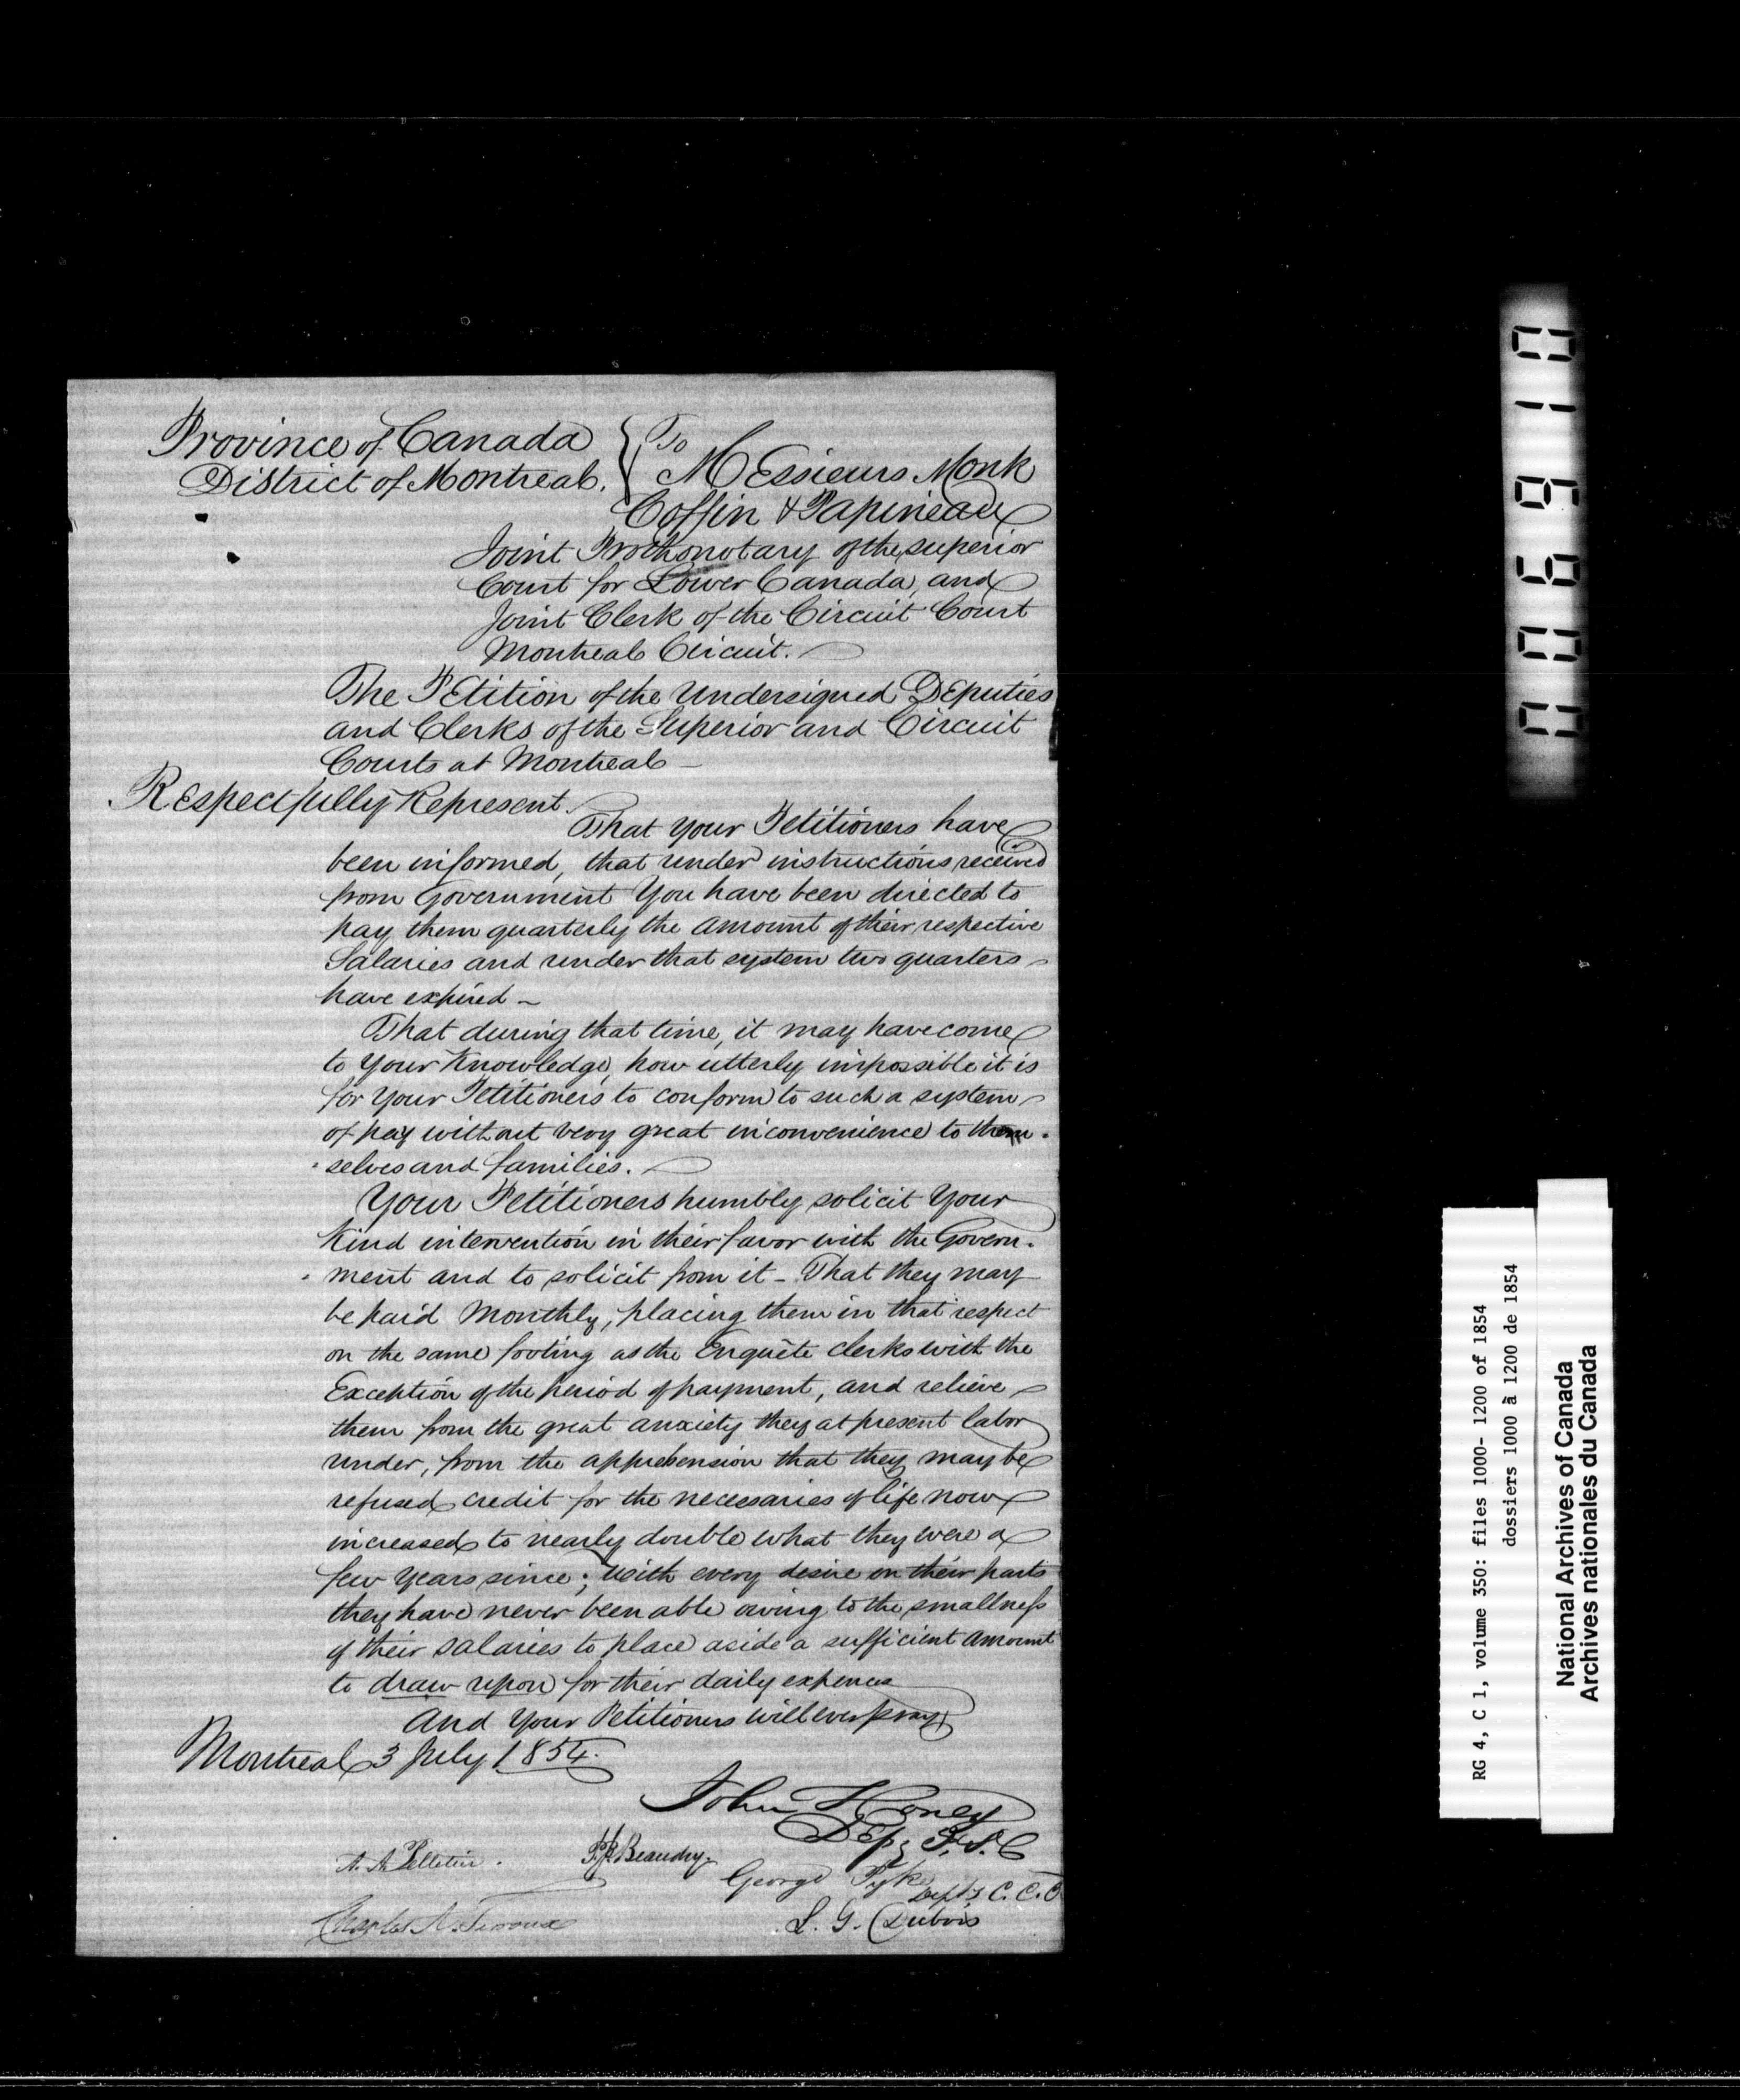 Province of Canada
District of Montreal.
To
MEssieurs Monk
Coffin & Papineau
Joint Prothonotary of the superior
Court for Lower Canada, and
Joint Clerk of the Circuit Court
Montreal Circuit.
The PEtition of the Undersigned DEputies
and Clerks of the Superior and Circuit
Courts at Montreal –
REspectfully Represent.
That your Petitioners have
been informed, that under instructions received
from Government You have been directed to
pay them quarterly the amount of their respective
Salaries and under that system two quarters
have expired –
That during that time, it may have come
to Your Knowledge, how utterly impossible it is
for your Petitioners to conform to such a system
of pay without very great inconvenience to them-
-selves and families.
Your Petitioners humbly solicit Your
Kind intervention in their favor with the Govern-
-ment and to solicit from it – That they may
be paid Monthly, placing them in that respect
on the same footing as the Enquête clerks with the
Exception of the period of payment, and relieve
them from the great anxiety they at present labor
under, from the apprehension that they may be
refused credit for the necessaries of life now
increased to nearly double what they were a
few years since; with every desire on their parts
they have never been able owing to the smallness
of their salaries to place aside a sufficient amount
to draw upon for their daily expences
And Your Petitioners will ever pray
Montreal 3 July 1854.
John Honey
Dep. P. S. C
A. A. Pelletier.
Beaudry
George Pyke
Depty C. C. C
L. G. Dubois
Charles A. Terroux
006910
RG 4, C 1, volume 350: files 1000- 1200 of 1854
dossiers 1000 à 1200 de 1854
National Archives of Canada
Archives nationales du Canada